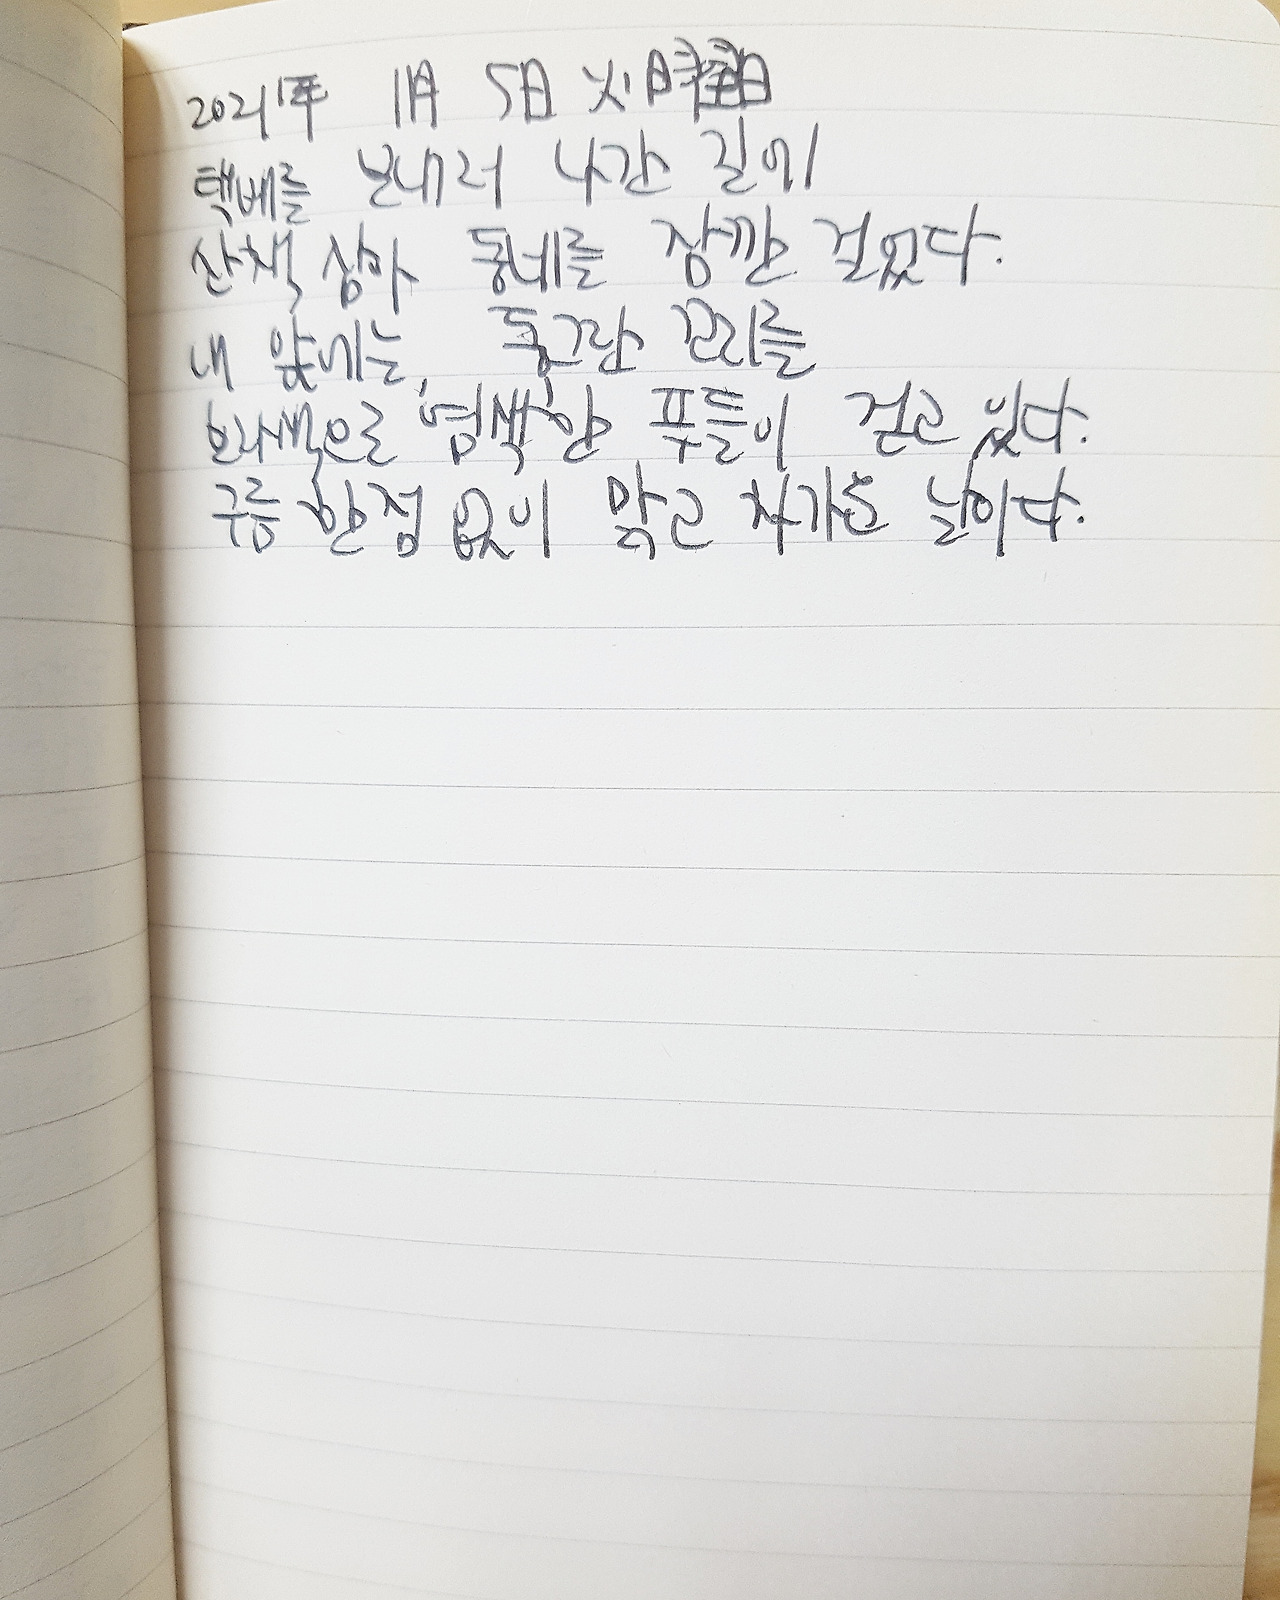 2021年 1月 5日 火曜日
택베를 보내러 나간 길에
산책 삼아 동네를 잠깐 걸었다.
내 앞에는, 동그란 꼬리를
보라색으로 염색한 푸들이 걷고 있다.
구름 한 점 없이 맑고 차가운 날이다.